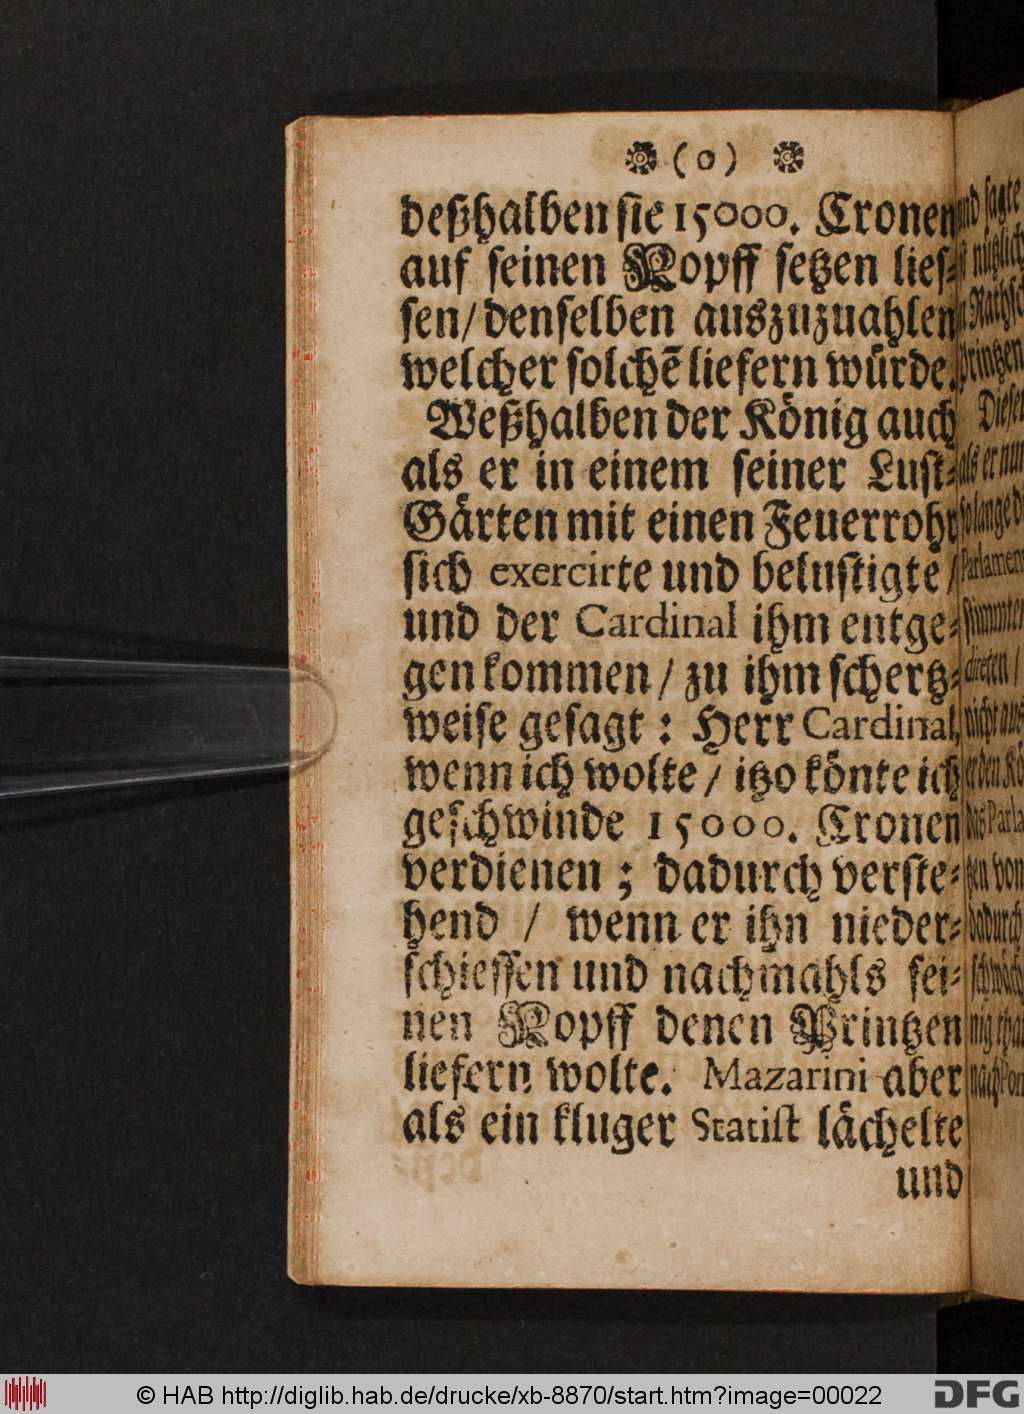 ❁ ( 0 ) ❁
deßhalben sie 15000. Cronen
auf seinen Kopff setzen lies-
sen/denselben auszuzuahlen
welcher solchẽ liefern würde.
Weßhalben der König auch
als er in einem seiner Lust-
Gärten mit einen Feuerrohr
sich exercirte und belustigte /
und der Cardinal ihm entge-
gen kommen / zu ihm schertz-
weise gesagt : Herr Cardinal,
wenn ich wolte / itzo könte ich
geschwinde 15000. Cronen
verdienen ; dadurch verste-
hend / wenn er ihn nieder-
schiessen und nachmahls sei-
nen Kopff denen Printzen
liefern wolte. Mazarini aber
als ein kluger Statist lächelte
und
nd sagte
nützlich
Printzen
Dieser
als er nun
so lange
Parlamen
von
dadurch
© HAB http://diglib.hab.de/drucke/xb-8870/start.htm?image=00022
DFG